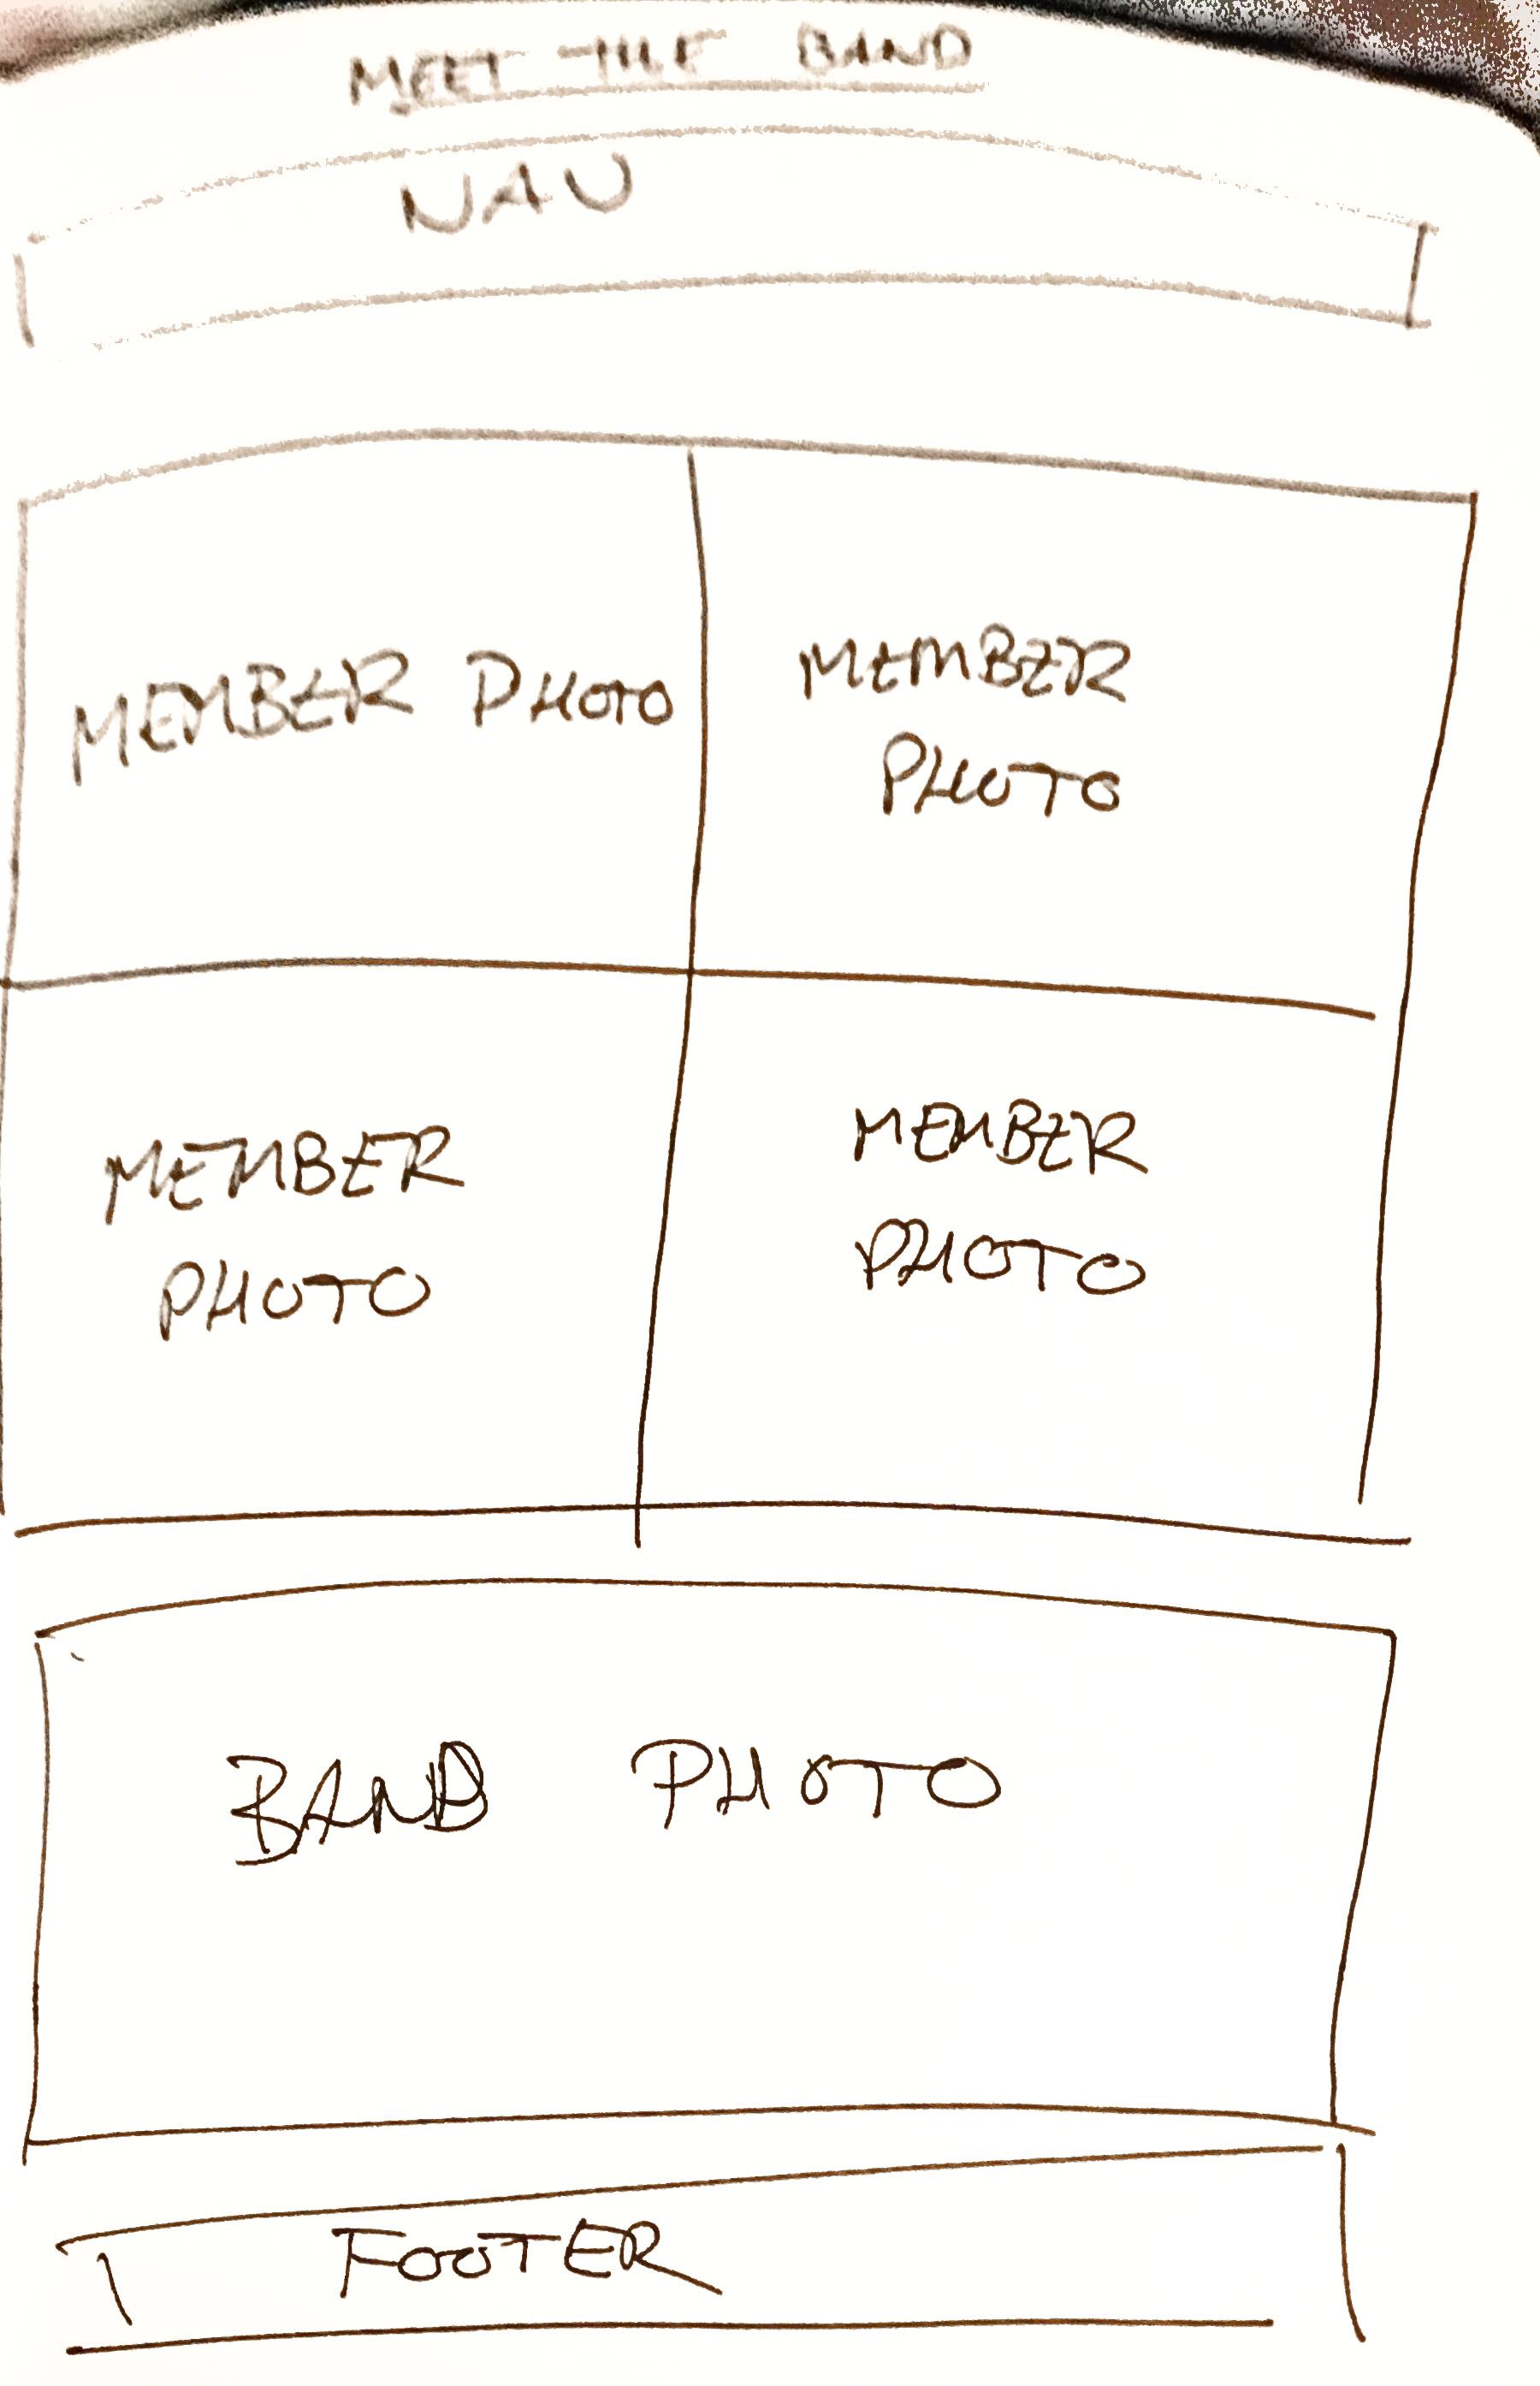 MEET THE BAND
NAV
MEMBER PHOTO
MEMBER
PHOTO
MEMBER
PHOTO
MEMBER
PHOTO
BAND PHOTO
FOOTER